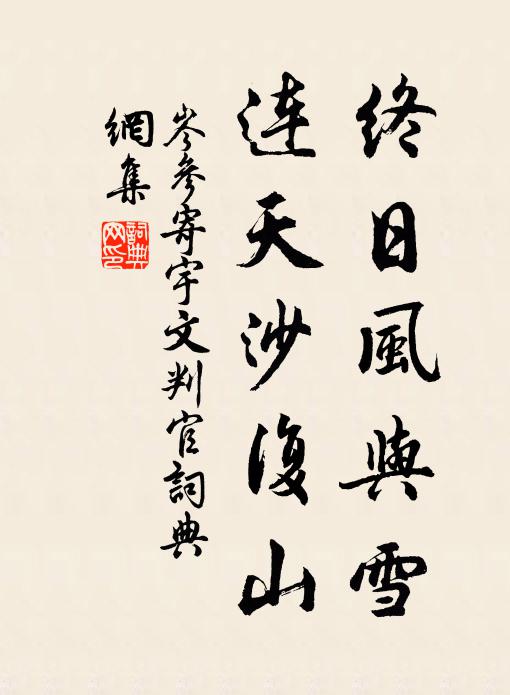 終日風與雪
連天沙復山
岑參寄宇文判官詞典
網集
詞典
网印